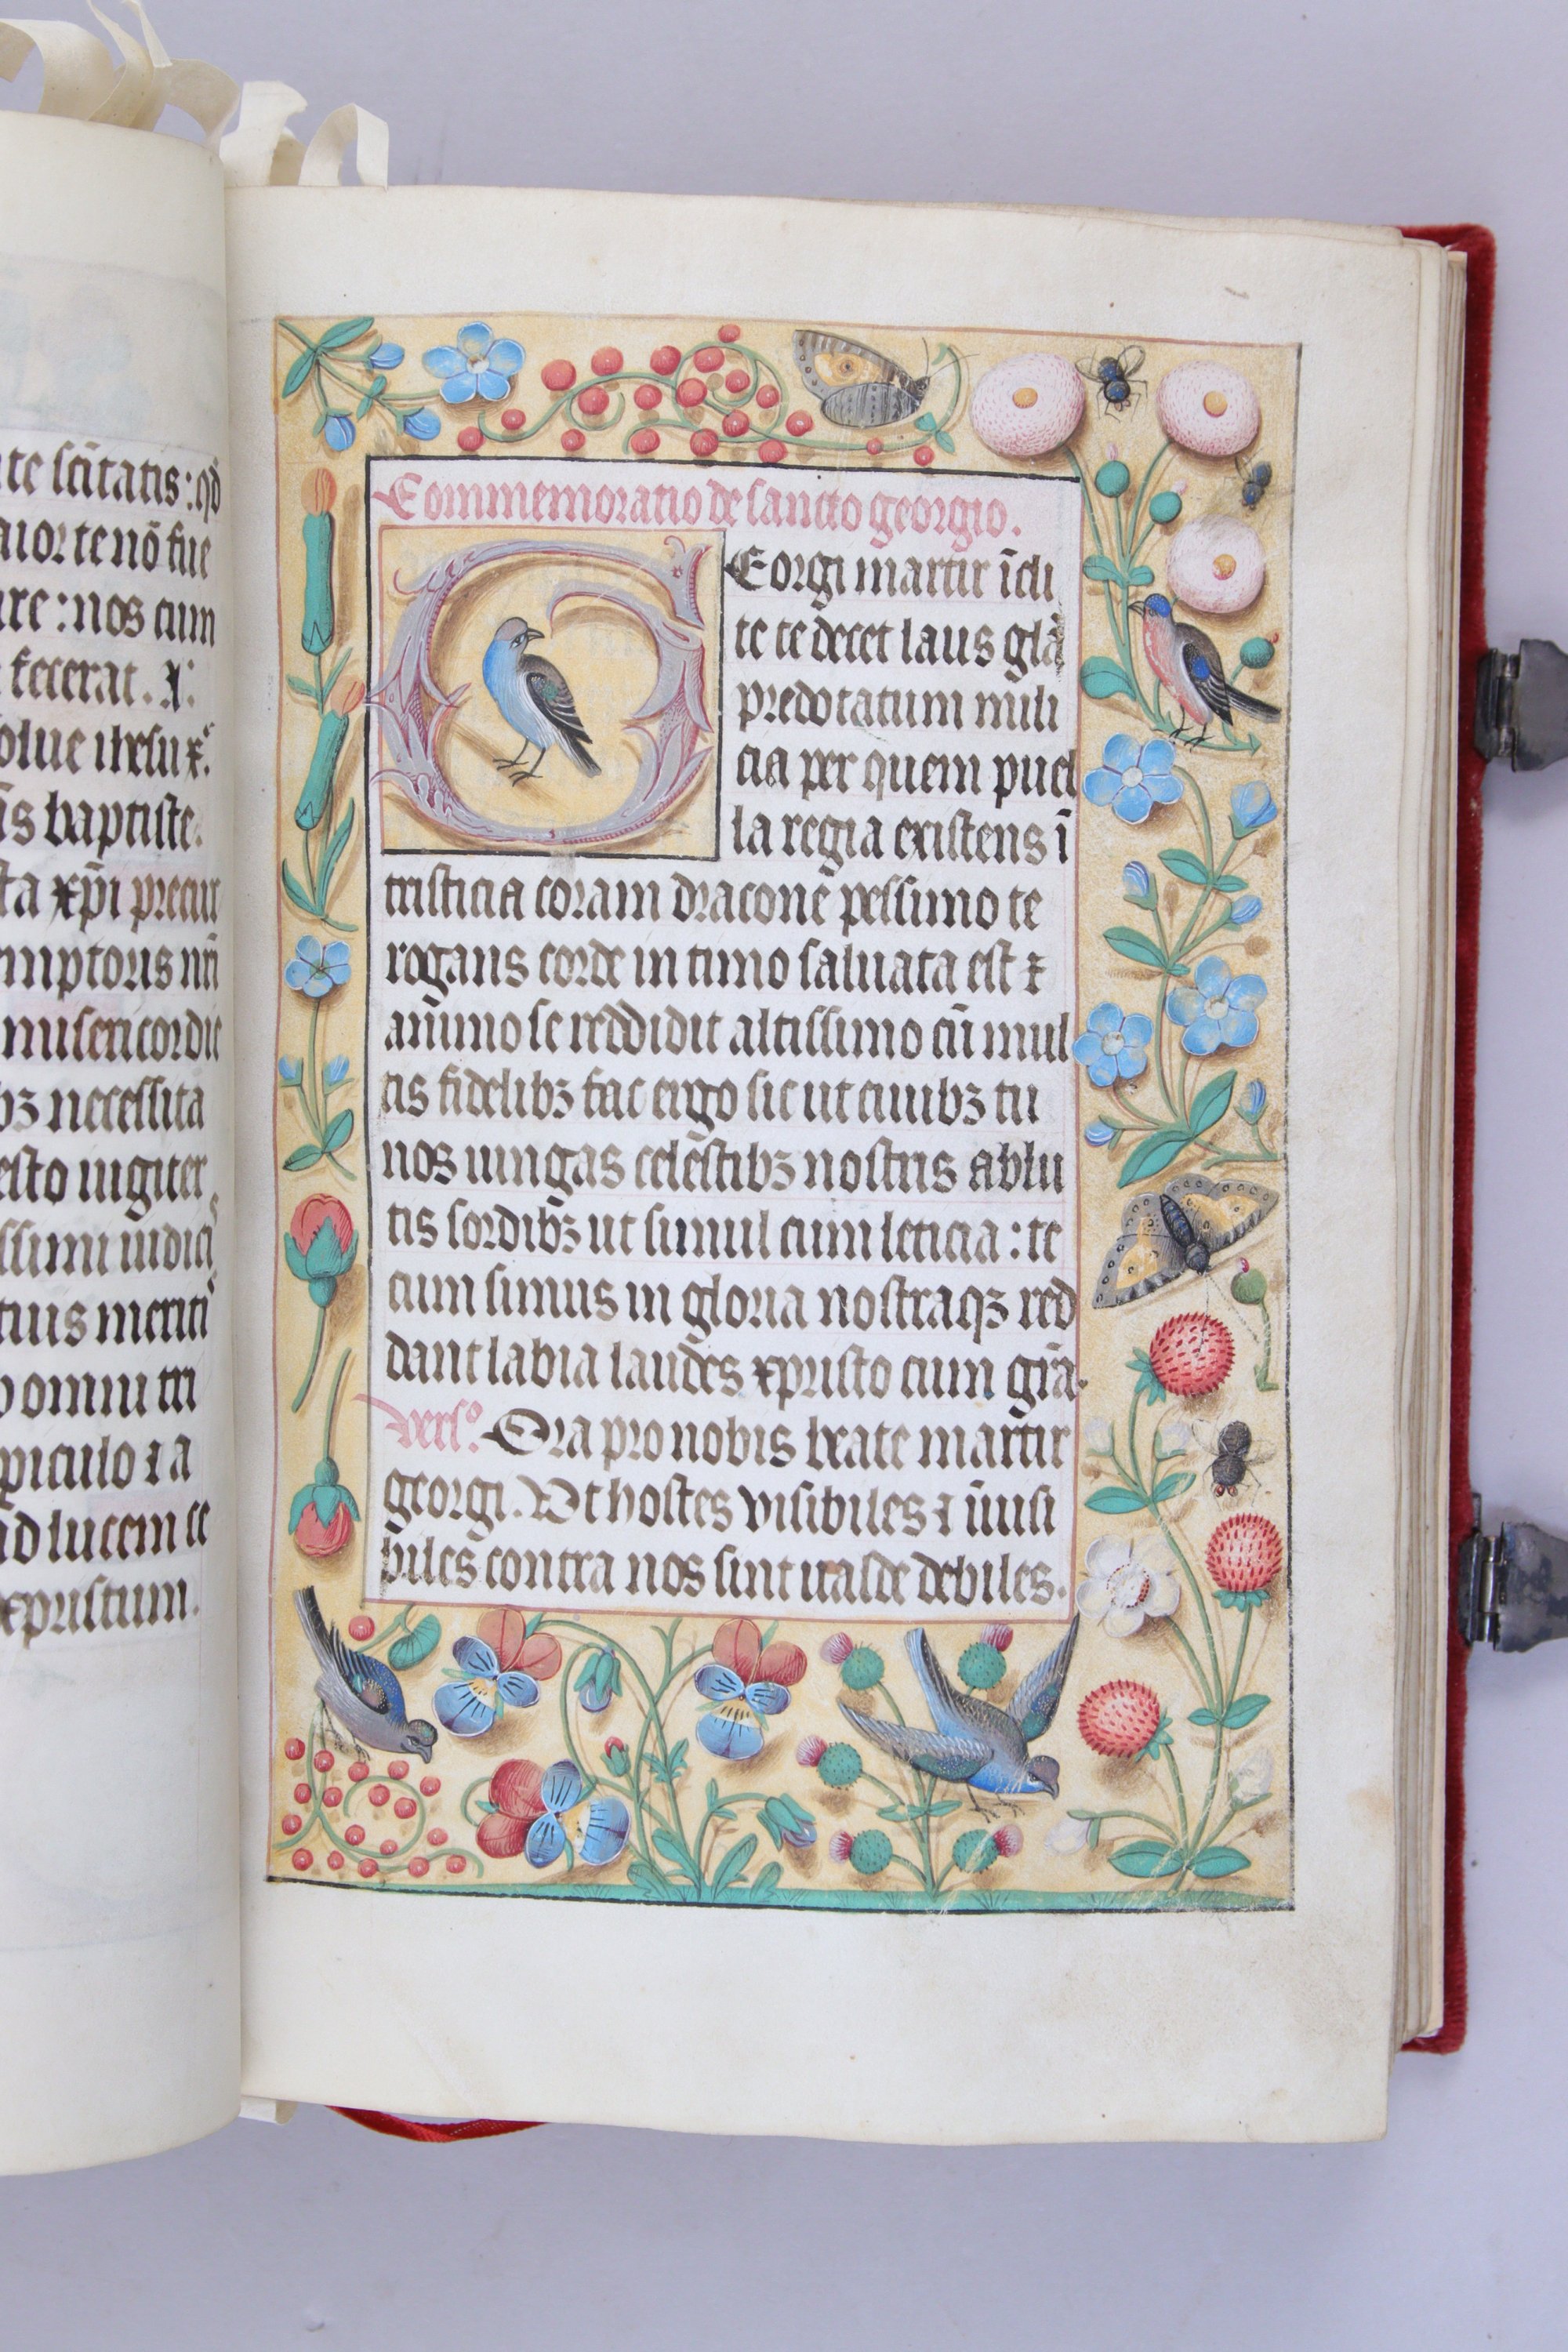 te sc̄itatis: qd̄
aior te nō fue
ure: nos cum
fecerat. X̄.
olue ihesu x̄.
is baptiste.
ta xp̄i precur
mptoris nr̄i
misericordie
bꝫ necessita
esto iugiter
ssimi iudici
tuis meriti
omniū tri
ꝑiculo ⁊ a
ad lucem ce
xpristum.
Commemoratio de sancto georgio.
GEorgi martir īcli
te te decet laus glā
predotatum mili
cia per quem puel
la regia existens ī
tristicia coram dracone pessimo te
rogans corde in timo saluata est ⁊
aīmo se reddidit altissimo cū mul
tis fidelibꝫ fac ergo sic ut ciuibꝫ tu
nos iungas celēstibꝫ nostris ablu
tis sordibꝫ ut simul cum leticia: te
cum simus in gloria nostraqꝫ red
dant labia laudes xpristo cum grā.
Versꝰ. Ora pro nobis beate martir
georgi. Vt hostes visibiles ⁊ īuisi
biles contra nos sint ualde debiles.